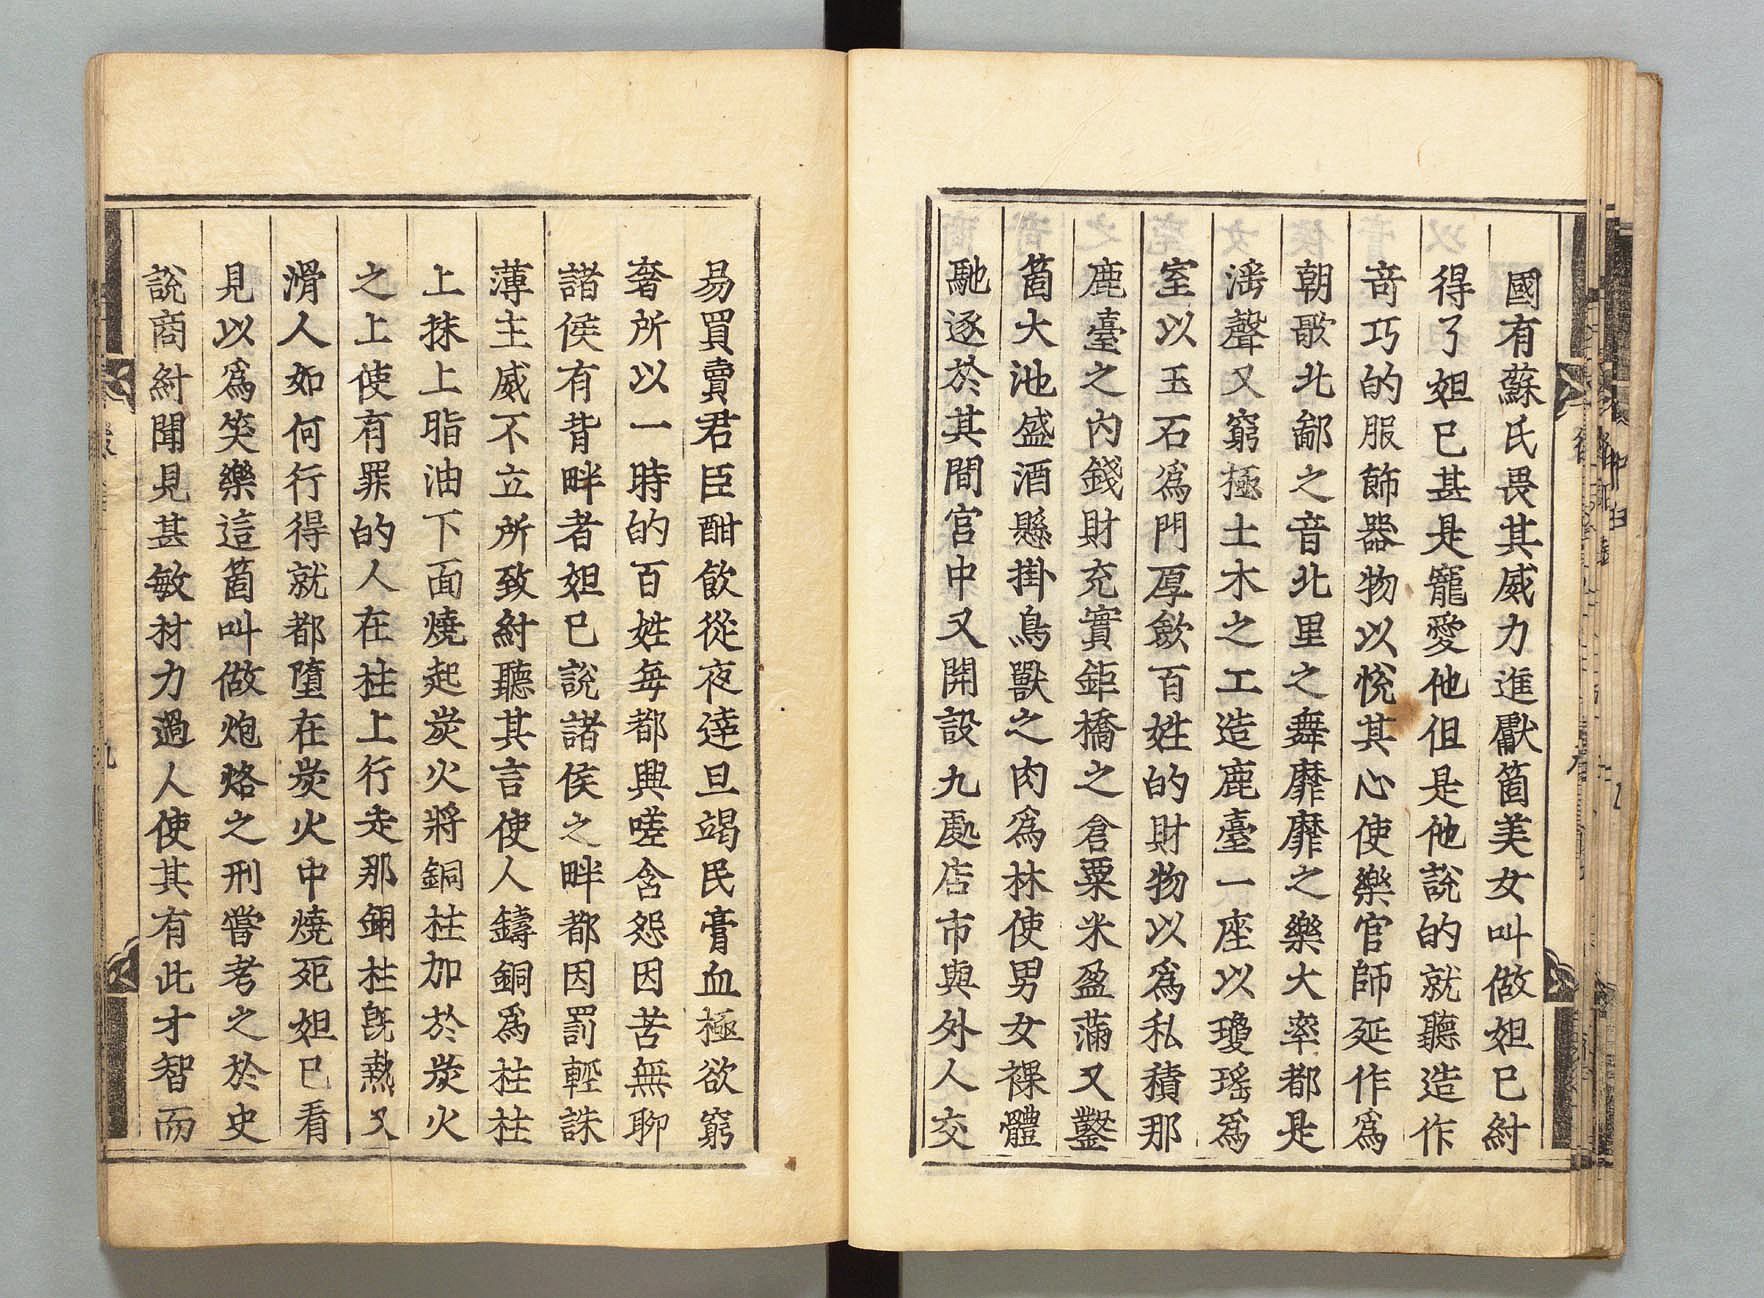 國有蘇氏畏其威力進獻箇美女叫做妲己紂
得了妲己甚是寵愛他但是他說的就聽造作
奇巧的服飾器物以悅其心使樂官師延作爲
朝歌北鄙之音北里之舞靡靡之樂大率都是
滛聲又窮極土木之工造鹿臺一座以瓊瑤爲
室以玉石爲門厚斂百姓的財物以爲私積那
鹿臺之內錢財充實鉅橋之倉粟米盈滿又鑿
箇大池盛酒懸掛鳥獸之肉爲林使男女裸體
馳逐於其間宮中又開設九處店市與外人交
易買賣君臣酣飮從夜達旦竭民膏血極欲窮
奢所以一時的百姓每都興嗟含怨因苦無聊
諸侯有背畔者妲己說諸侯之畔都因罰輕誅
薄主威不立所致紂聽其言使人鑄銅爲柱柱
上抹上脂油下面燒起炭火將銅柱加於炭火
之上使有罪的人在柱上行走那銅柱旣熱又
滑人如何行得就都墮在炭火中燒死妲己看
見以爲笑樂這箇叫做炮烙之刑嘗考之於史
說商紂聞見甚敏材力過人使其有此才智而